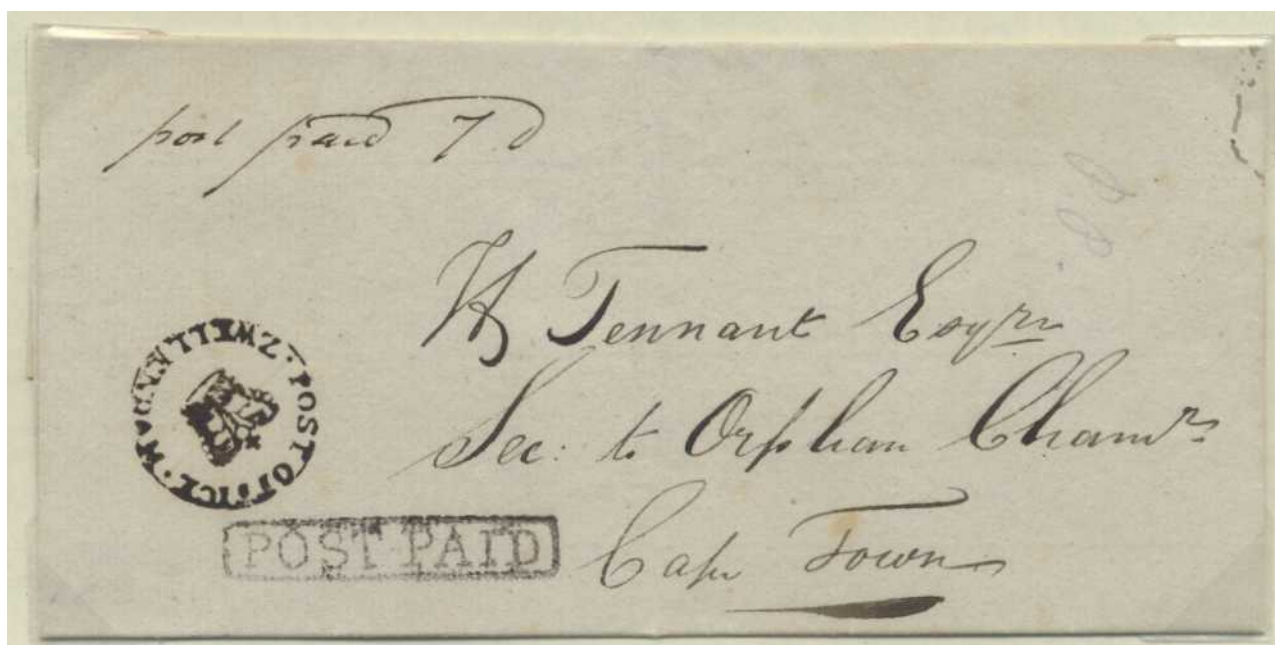 post paid 7 d
H Tennant Esqre
Sec: to Orphan Chamr
Cape Town
POST OFFICE · ZWELLENDAM ·
POST PAID